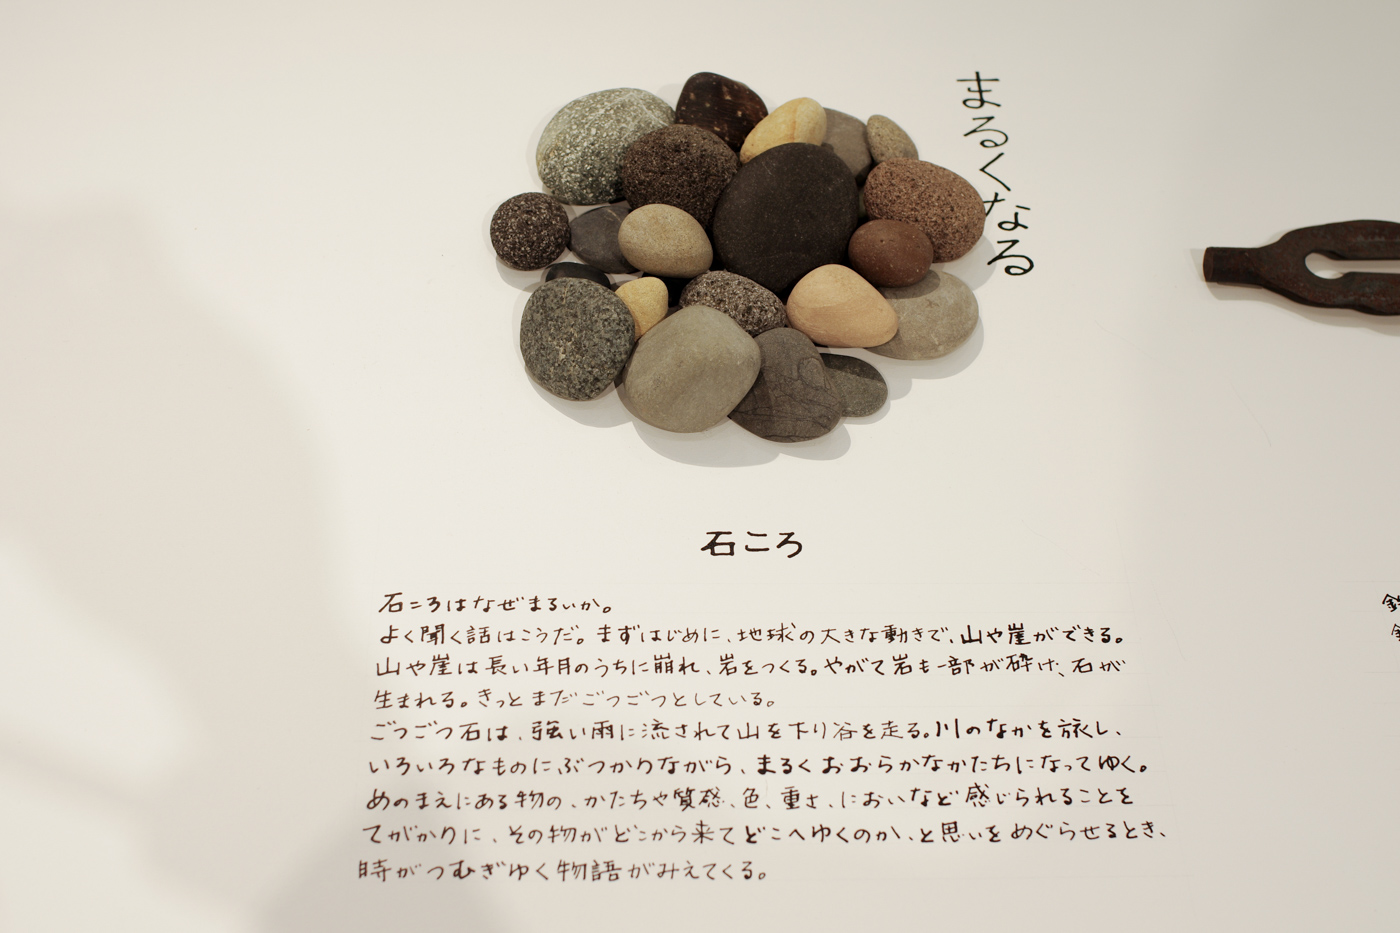 まるくなる
石ころ
石ころはなぜまるいか。
よく聞く話はこうだ。まずはじめに、地球の大きな動きで、山や崖ができる。
山や崖は長い年月のうちに崩れ、岩をつくる。やがて岩も一部が砕け、石が
生まれる。きっとまだごつごつとしている。
ごつごつ石は、強い雨に流されて山を下り谷を走る。川のなかを旅し、
いろいろなものにぶつかりながら、まるくおおらかなかたちになってゆく。
めのまえにある物の、かたちや質感、色、重さ、においなど感じられることを
てがかりに、その物がどこから来てどこへゆくのか、と思いをめぐらせるとき、
時がつむぎゆく物語がみえてくる。